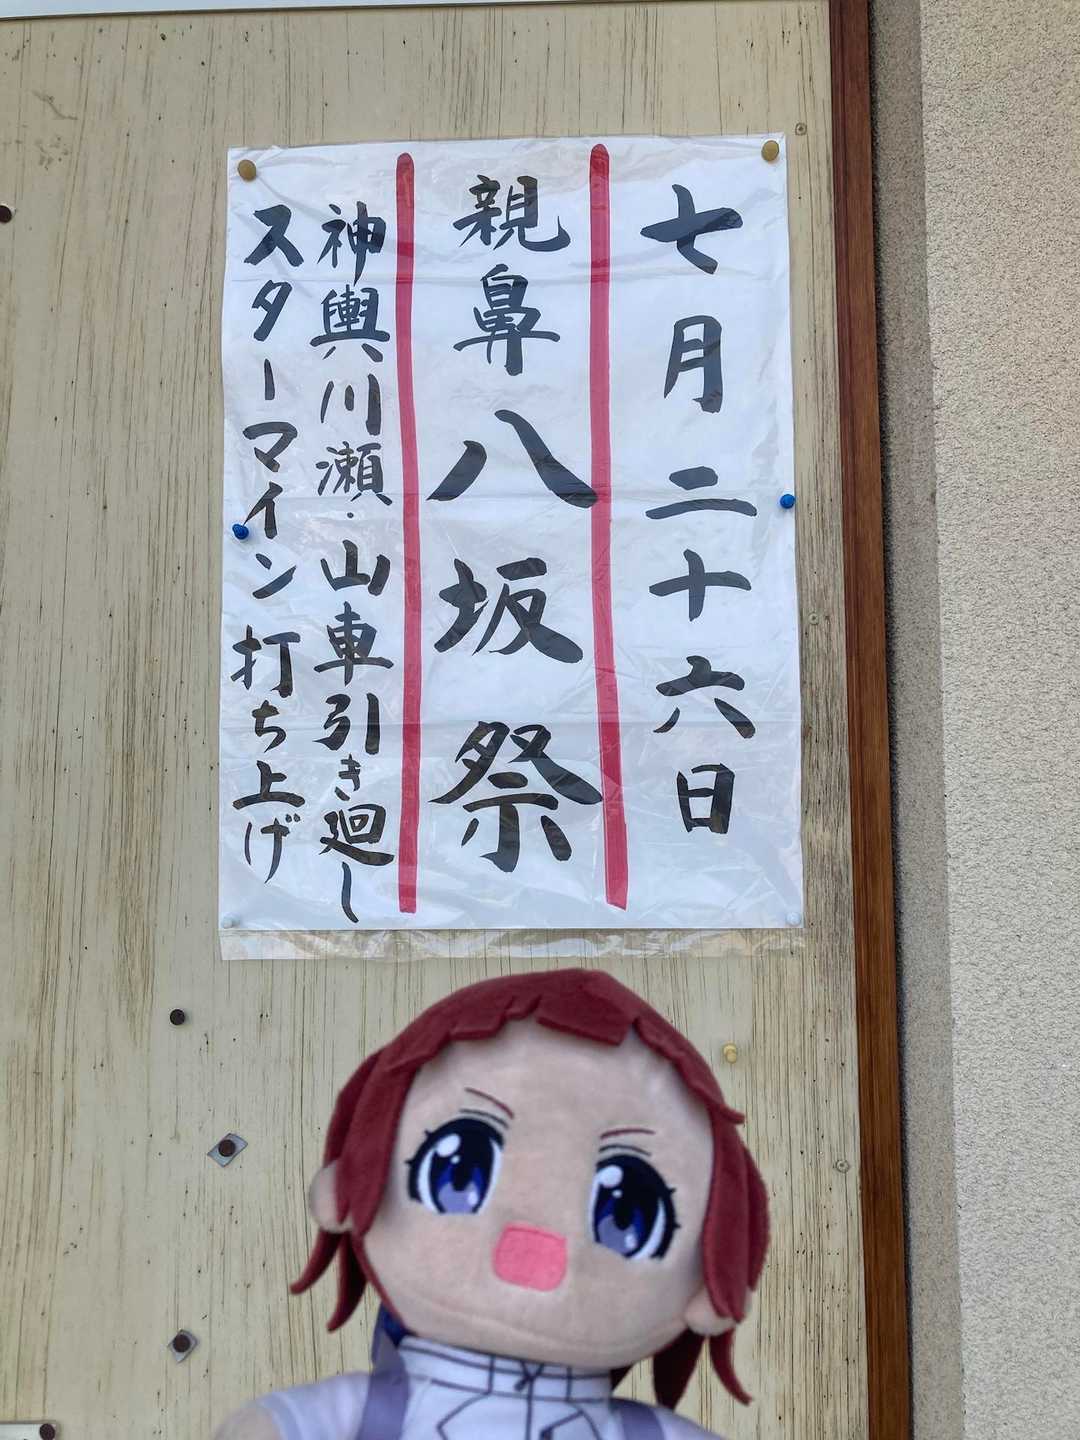 七月二十六日
親鼻八坂祭
神輿川瀬・山車引き廻し
スターマイン打ち上げ